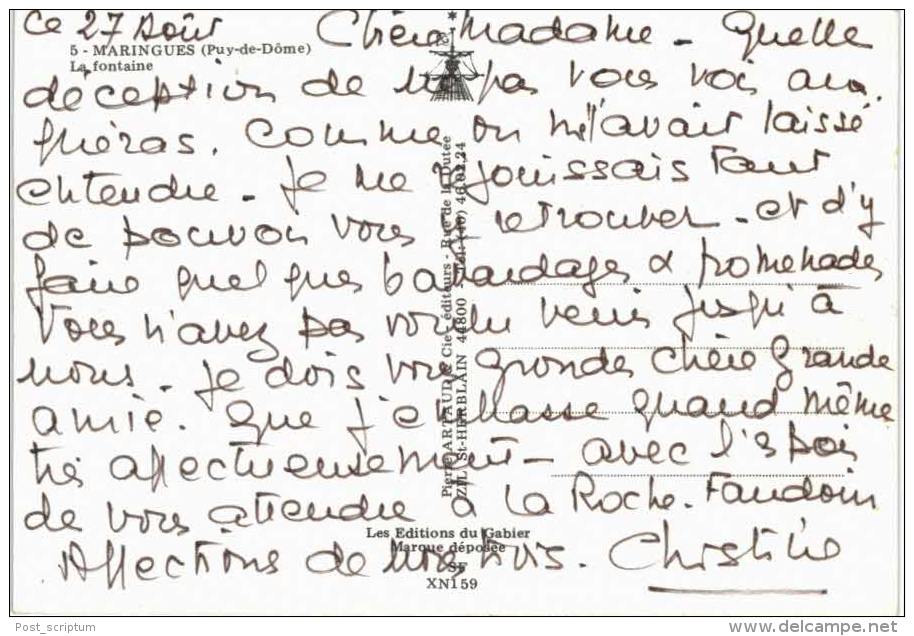 Ce 27 Août
Chère Madame - Quelle
5 - MARINGUES (Puy-de-Dôme)
La fontaine
déception de ne pas vous voir aux
. Comme on m'avait laissé
entendre - Je me réjouissais tant
de pouvoir vous retrouver - et d'y
faire quelques bavardages & promenades
Vous n'avez pas voulu venir jusqu'à
nous. Je dois vous gronder chère Grande
amie. Que j'embrasse quand même
très affectueusement - avec l'espoir
de vous attendre à La Roche-Fandoin
Affections de nous trois. Christine
Pierre ARTAUD & Cie - éditeurs - Rue de la Dutée
Z.I.L St-HERBLAIN 44800 - Tél. (40) 46.02.24
Les Editions du Gabier
Marque déposée
SF
XN159
Post_scriptum
delcampe.net